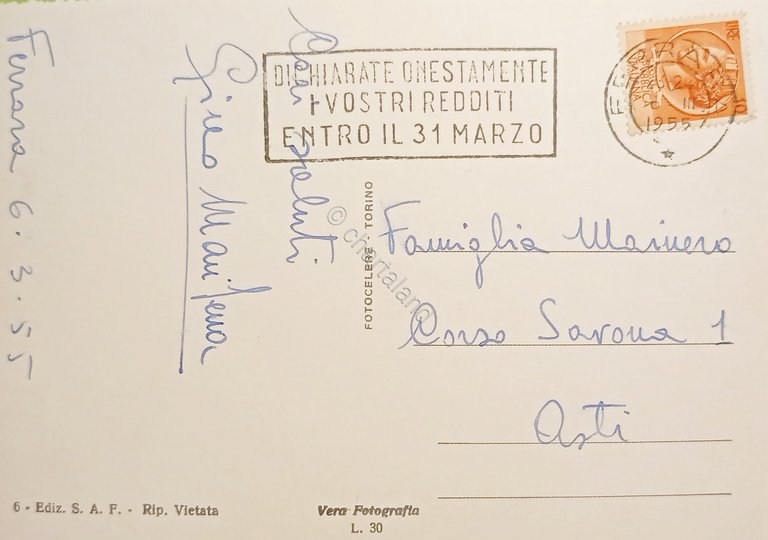 Ferrara 6.3.55
Cari saluti
DICHIARATE ONESTAMENTE
I VOSTRI REDDITI
ENTRO IL 31 MARZO
FERRARA
1955
FOTOCELERE TORINO
© chartaland
Famiglia Mainero
Corso Savona 1
Asti
6 - Ediz. S. A. F. - Rip. Vietata
Vera Fotografia
L. 30